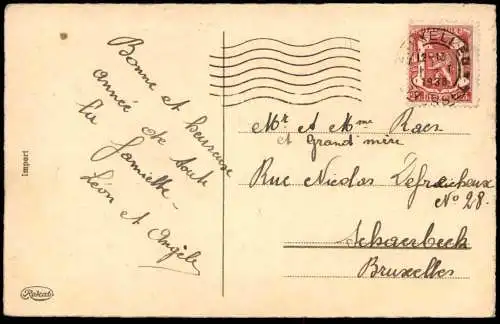 Bonne et heureuse
année de toute
la famille
Léon et Angèle
Import
Rekat
XELLE
12-13
1938
Mr et Mme Raes
et Grand'mère
Rue Nicolas Defrecheux
No 28.
Schaerbeek
Bruxelles